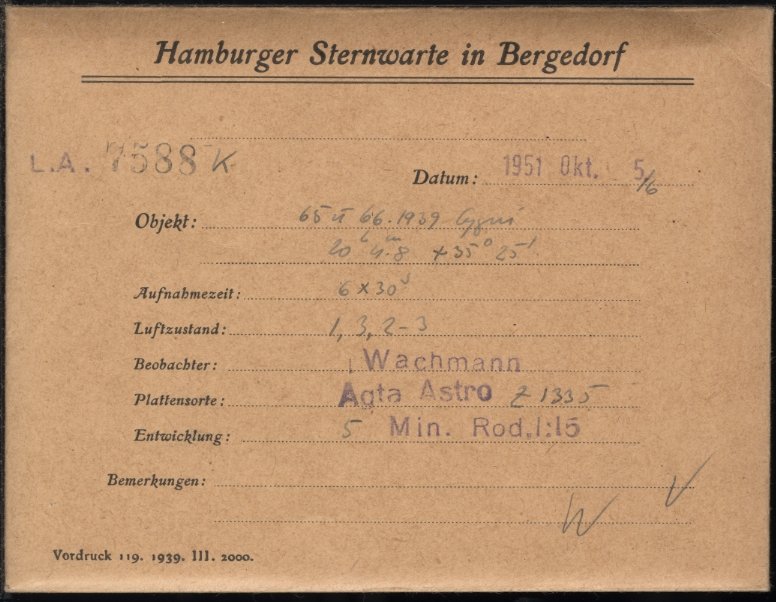 Hamburger Sternwarte in Bergedorf
L.A. 7588 K
Datum: 1951 Okt. 5/6
Objekt: 65 u 66.1939 Cygni
20h 4m.8 +35° 25'
Aufnahmezeit: 6 x 30s
Luftzustand: 1, 3, 2-3
Beobachter: Wachmann
Plattensorte: Agfa Astro Z 1335
Entwicklung: 5 Min. Rod. 1:15
Bemerkungen:
W V
Vordruck 119. 1939. III. 2000.